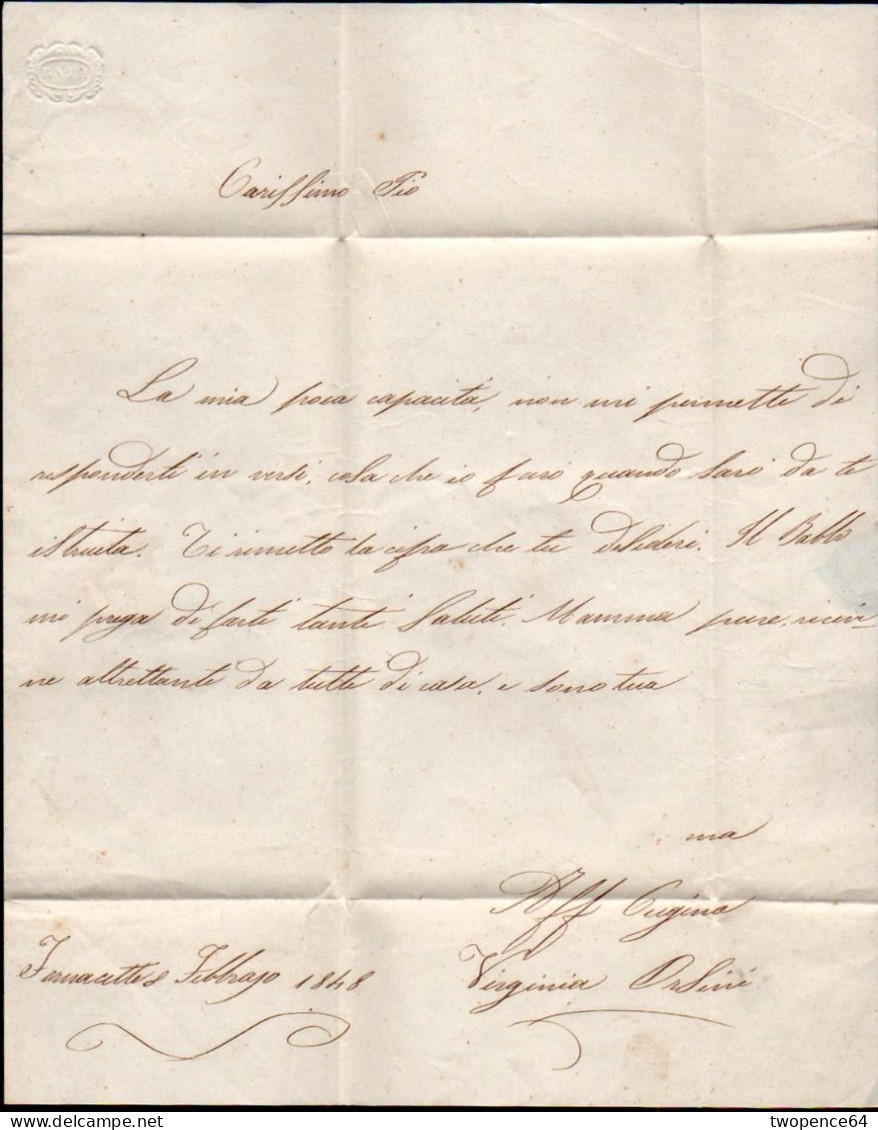 BATH
Carissimo Pio
La mia poca capacità, non mi permette di
risponderti in versi, cosa che io farò quando sarò da te
istruita. Ti rimetto la cifra che tu desideri. Il Babbo
mi prega di farti tanti saluti. Mamma pure, ricevi-
ne altrettanti da tutti di casa, e sono tua
ma
Aff Cugina
Fornacette 8 Febbrajo 1848
Virginia Orsini
twopence64